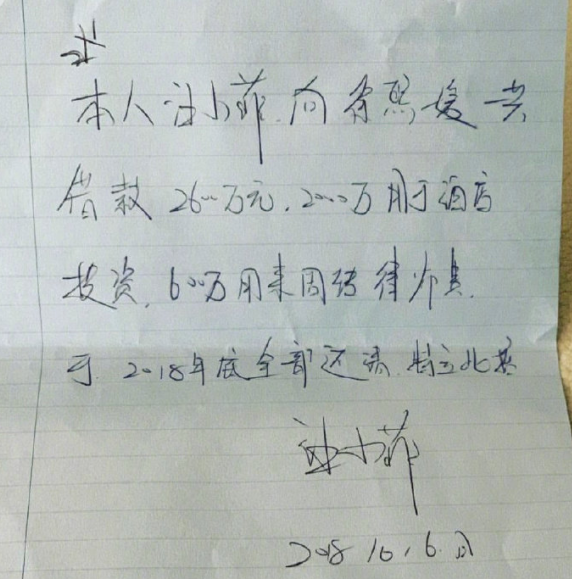 本人汪小菲向徐熙媛共
借款2600万元.2000万用于酒店
投资,600万用来周转律师费.
于2018年底全部还清.特立此据
汪小菲
2018 10.6.日